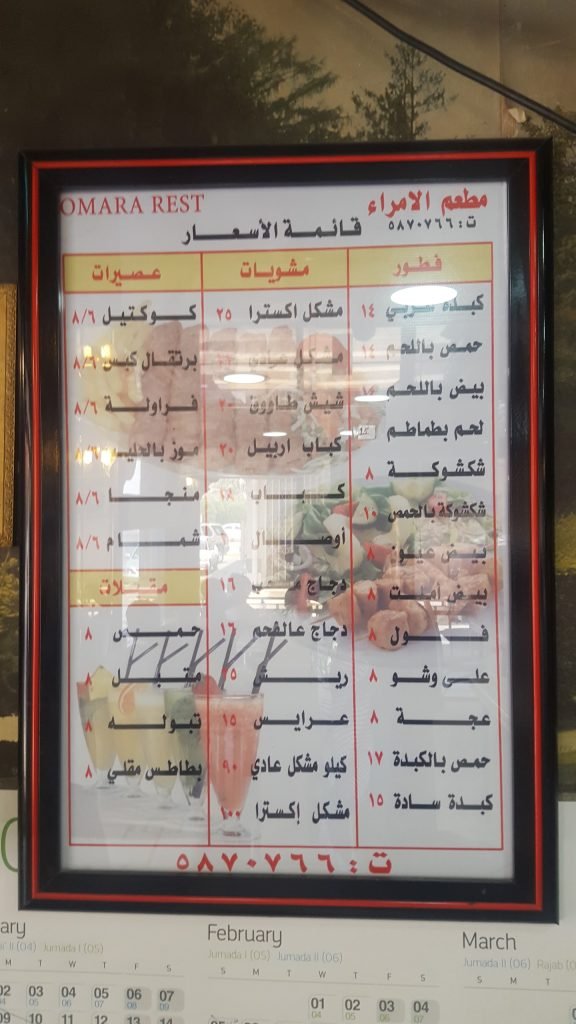 OMARA REST
مطعم الامراء
ت: ٥٨٧٠٧٦٦
قائمة الأسعار
فطور
١٤
حمص باللحم ١٤
بيض باللحم
لحم بطماطم
شكشوكة ٨
شكشوكة بالحمص ١٠
بيض عيون ٨
بيض أملت ٨
فول ٨
على وشو ٨
عجة ٨
حمص بالكبدة ١٧
كبدة سادة ١٥
مشويات
مشكل اكسترا ٢٥
مشكل عادي
شيش طاووق
كباب اربيل ٢٠
كباب ١٨
أوصال
دجاج ١٦
دجاج عالفحم ١٦
ريش
عرايس ١٥
كيلو مشكل عادي ٩٠
مشكل إكسترا ١٠٠
عصيرات
كوكتيل ٨/٦
برتقال كبس ٨/٦
فراولة ٨/٦
موز بالحليب ٨/٦
منجا ٨/٦
شمام ٨/٦
مقبلات
حمص ٨
متبل ٨
تبوله ٨
بطاطس مقلي ٨
ت: ٥٨٧٠٧٦٦
ary
II (04) Jumada I (05)
M T W T F S
02 03 04 05 06 07
09 10 11 12 13 14
February
Jumada I (05) Jumada II (06)
S M T W T F S
01 02 03 04
March
Jumada II (06) Rajab
S M T